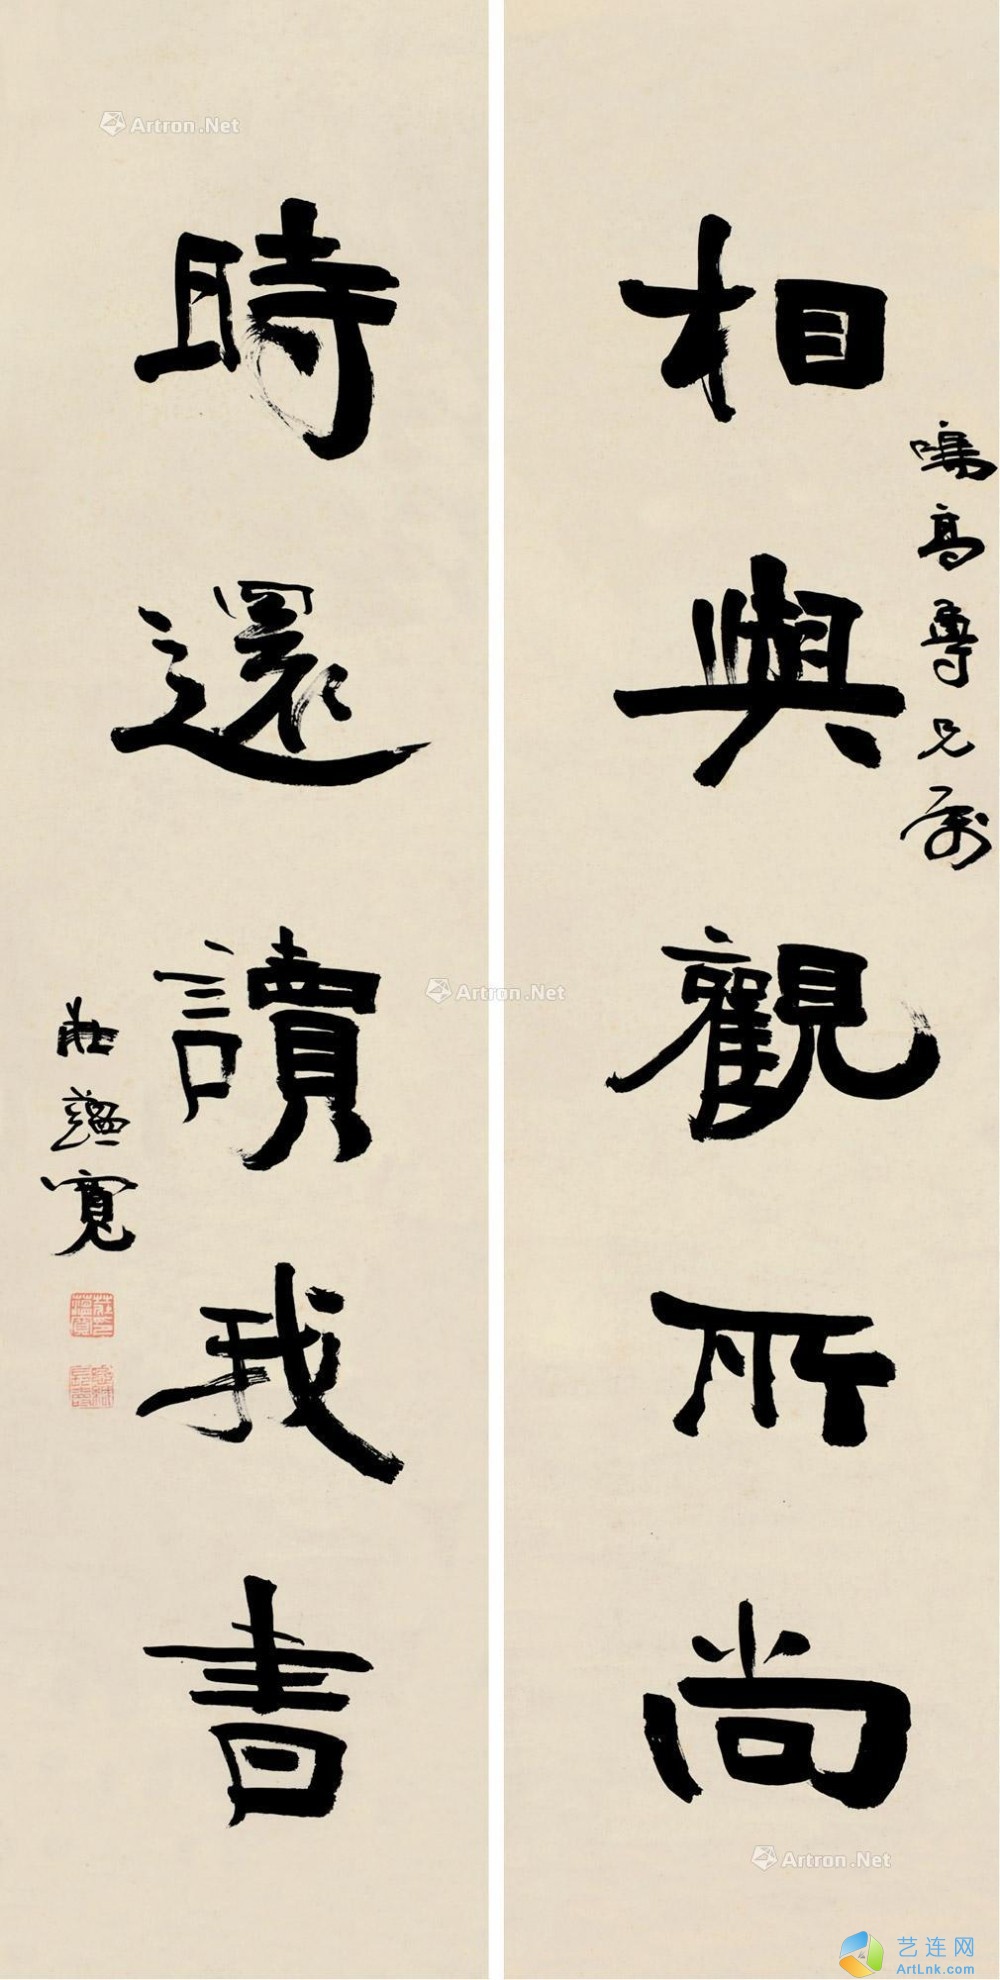 相與觀所尚
鳴高尊兄屬
時還讀我書
莊蘊寬
Artron.Net
Artron.Net
Artron.Net
艺连网
ArtLnk.com